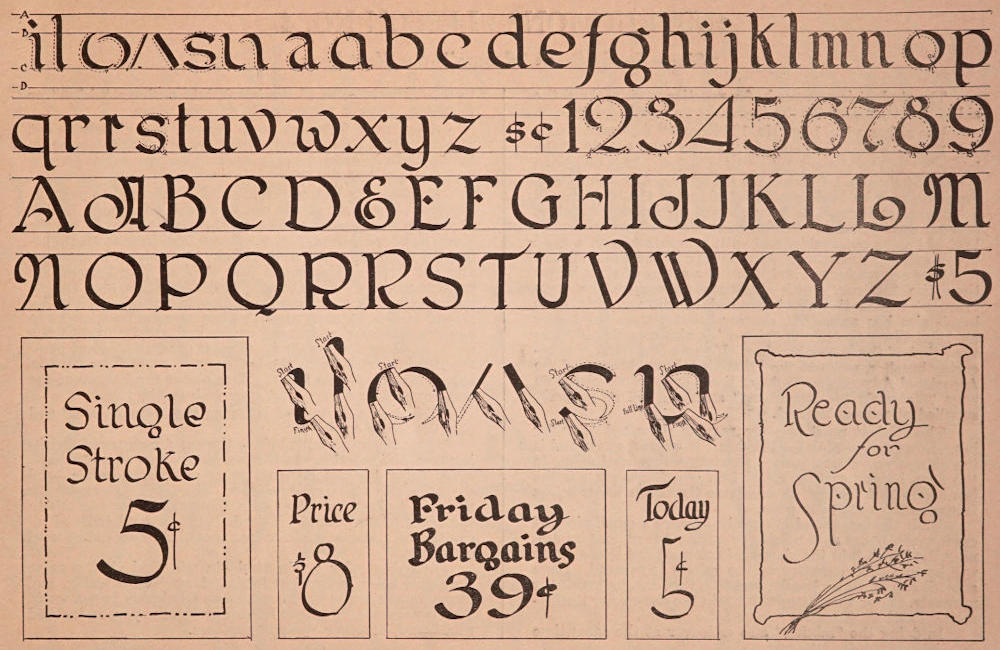 A
B
C
D
i l o ʌ s u a a b c d e f g h i j k l m n o p
q r r s t u v w x y z $ ¢ 1 2 3 4 5 6 7 8 9
A A B C D & E F G H I J J K L L M
N O P Q R R S T U V W X Y Z $ 5
Start Start Start Start Start
Finish Start Full Line Finish
Single
Stroke
5¢
Price
$8
Friday
Bargains
39¢
Today
5¢
Ready
for
Spring